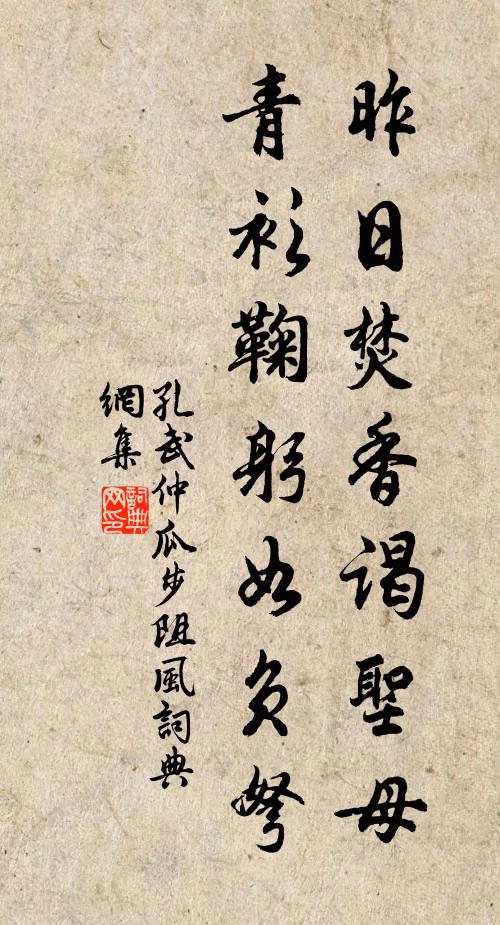 昨日焚香謁聖母
青衫鞠躬如負弩
孔武仲瓜步阻風詞典
網集
詞典
网印